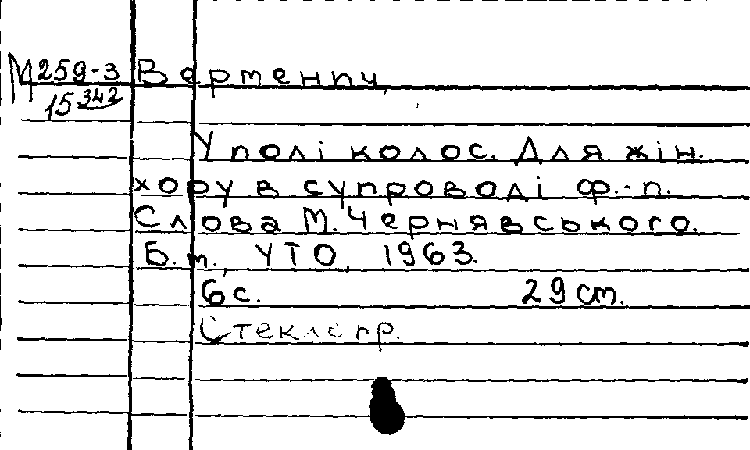 М259-3 Вертенич,
15 342
У полі колос. Для жін.
хору в супроводі ф.-п.
Слова М. Чернявського.
Б. м., УТО, 1963.
6 с. 29 cm.
Стеклопр.